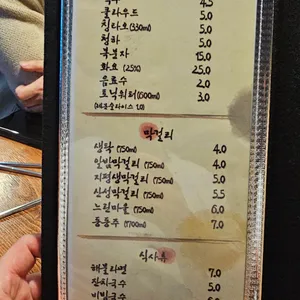 4.5
클라우드 5.0
칭따오 (330ml) 5.0
청하 5.0
복분자 15.0
화요 (25%) 25.0
음료수 2.0
토닉워터 (600ml) 3.0
막걸리
생탁 (750ml) 4.0
알밤막걸리 (750ml) 4.0
지평생막걸리 (750ml) 5.0
산성막걸리 (750ml) 5.5
느린마을 (750ml) 6.0
동동주 (1700ml) 7.0
식사류
해물라면 7.0
잔치국수 5.0
비빔국수